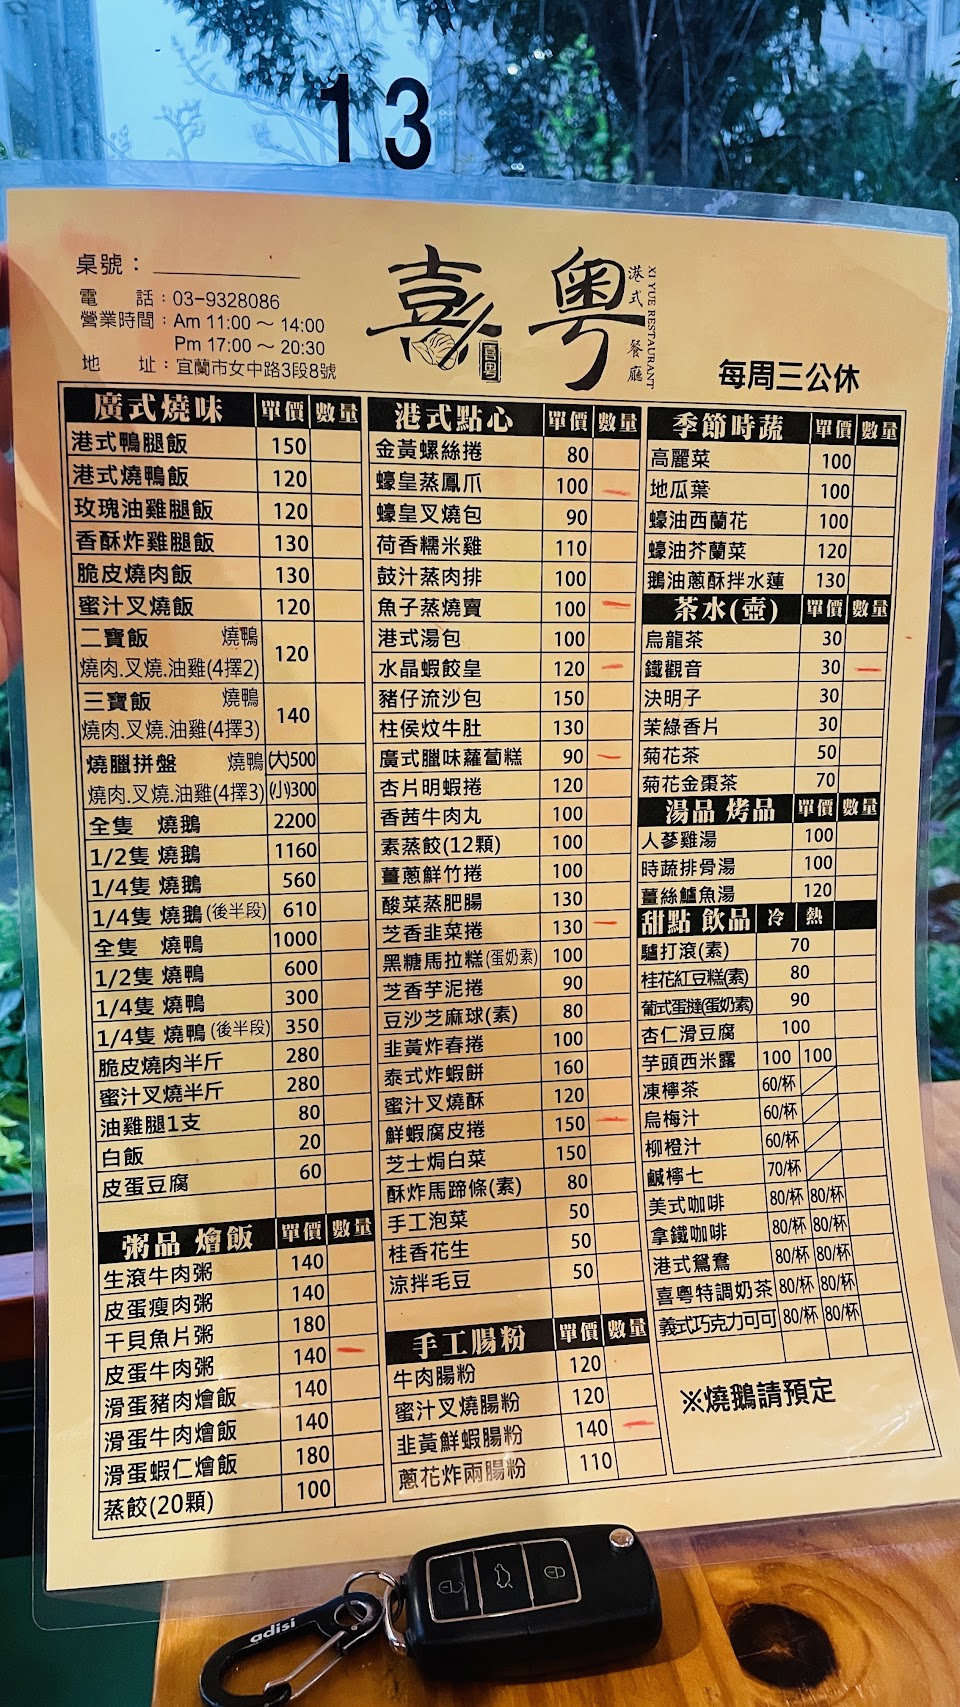 13
桌號：
電　　話：03-9328086
營業時間：Am 11:00～14:00
Pm 17:00～20:30
地　　址：宜蘭市女中路3段8號
喜粵
喜粵
港式餐廳
XI YUE RESTAURANT
每周三公休
廣式燒味 單價 數量
港式鴨腿飯 150
港式燒鴨飯 120
玫瑰油雞腿飯 120
香酥炸雞腿飯 130
脆皮燒肉飯 130
蜜汁叉燒飯 120
二寶飯 燒鴨
燒肉.叉燒.油雞(4擇2) 120
三寶飯 燒鴨
燒肉.叉燒.油雞(4擇3) 140
燒臘拼盤 燒鴨 (大)500
燒肉.叉燒.油雞(4擇3) (小)300
全隻 燒鵝 2200
1/2隻 燒鵝 1160
1/4隻 燒鵝 560
1/4隻 燒鵝(後半段) 610
全隻 燒鴨 1000
1/2隻 燒鴨 600
1/4隻 燒鴨 300
1/4隻 燒鴨(後半段) 350
脆皮燒肉半斤 280
蜜汁叉燒半斤 280
油雞腿1支 80
白飯 20
皮蛋豆腐 60
粥品 燴飯 單價 數量
生滾牛肉粥 140
皮蛋瘦肉粥 140
干貝魚片粥 180
皮蛋牛肉粥 140
滑蛋豬肉燴飯 140
滑蛋牛肉燴飯 140
滑蛋蝦仁燴飯 180
蒸餃(20顆) 100
港式點心 單價 數量
金黃螺絲捲 80
蠔皇蒸鳳爪 100
蠔皇叉燒包 90
荷香糯米雞 110
鼓汁蒸肉排 100
魚子蒸燒賣 100
港式湯包 100
水晶蝦餃皇 120
豬仔流沙包 150
柱侯炆牛肚 130
廣式臘味蘿蔔糕 90
杏片明蝦捲 120
香茜牛肉丸 100
素蒸餃(12顆) 100
薑蔥鮮竹捲 100
酸菜蒸肥腸 130
芝香韭菜捲 130
黑糖馬拉糕(蛋奶素) 100
芝香芋泥捲 90
豆沙芝麻球(素) 80
韭黃炸春捲 100
泰式炸蝦餅 160
蜜汁叉燒酥 120
鮮蝦腐皮捲 150
芝士焗白菜 150
酥炸馬蹄條(素) 80
手工泡菜 50
桂香花生 50
涼拌毛豆 50
手工腸粉 單價 數量
牛肉腸粉 120
蜜汁叉燒腸粉 120
韭黃鮮蝦腸粉 140
蔥花炸兩腸粉 110
季節時蔬 單價 數量
高麗菜 100
地瓜葉 100
蠔油西蘭花 100
蠔油芥蘭菜 120
鵝油蔥酥拌水蓮 130
茶水(壺) 單價 數量
烏龍茶 30
鐵觀音 30
決明子 30
茉綠香片 30
菊花茶 50
菊花金棗茶 70
湯品 烤品 單價 數量
人蔘雞湯 100
時蔬排骨湯 100
薑絲鱸魚湯 120
甜點 飲品 冷 熱
驢打滾(素) 70
桂花紅豆糕(素) 80
葡式蛋撻(蛋奶素) 90
杏仁滑豆腐 100
芋頭西米露 100 100
凍檸茶 60/杯
烏梅汁 60/杯
柳橙汁 60/杯
鹹檸七 70/杯
美式咖啡 80/杯 80/杯
拿鐵咖啡 80/杯 80/杯
港式鴛鴦 80/杯 80/杯
喜粵特調奶茶 80/杯 80/杯
義式巧克力可可 80/杯 80/杯
※燒鵝請預定
adisi